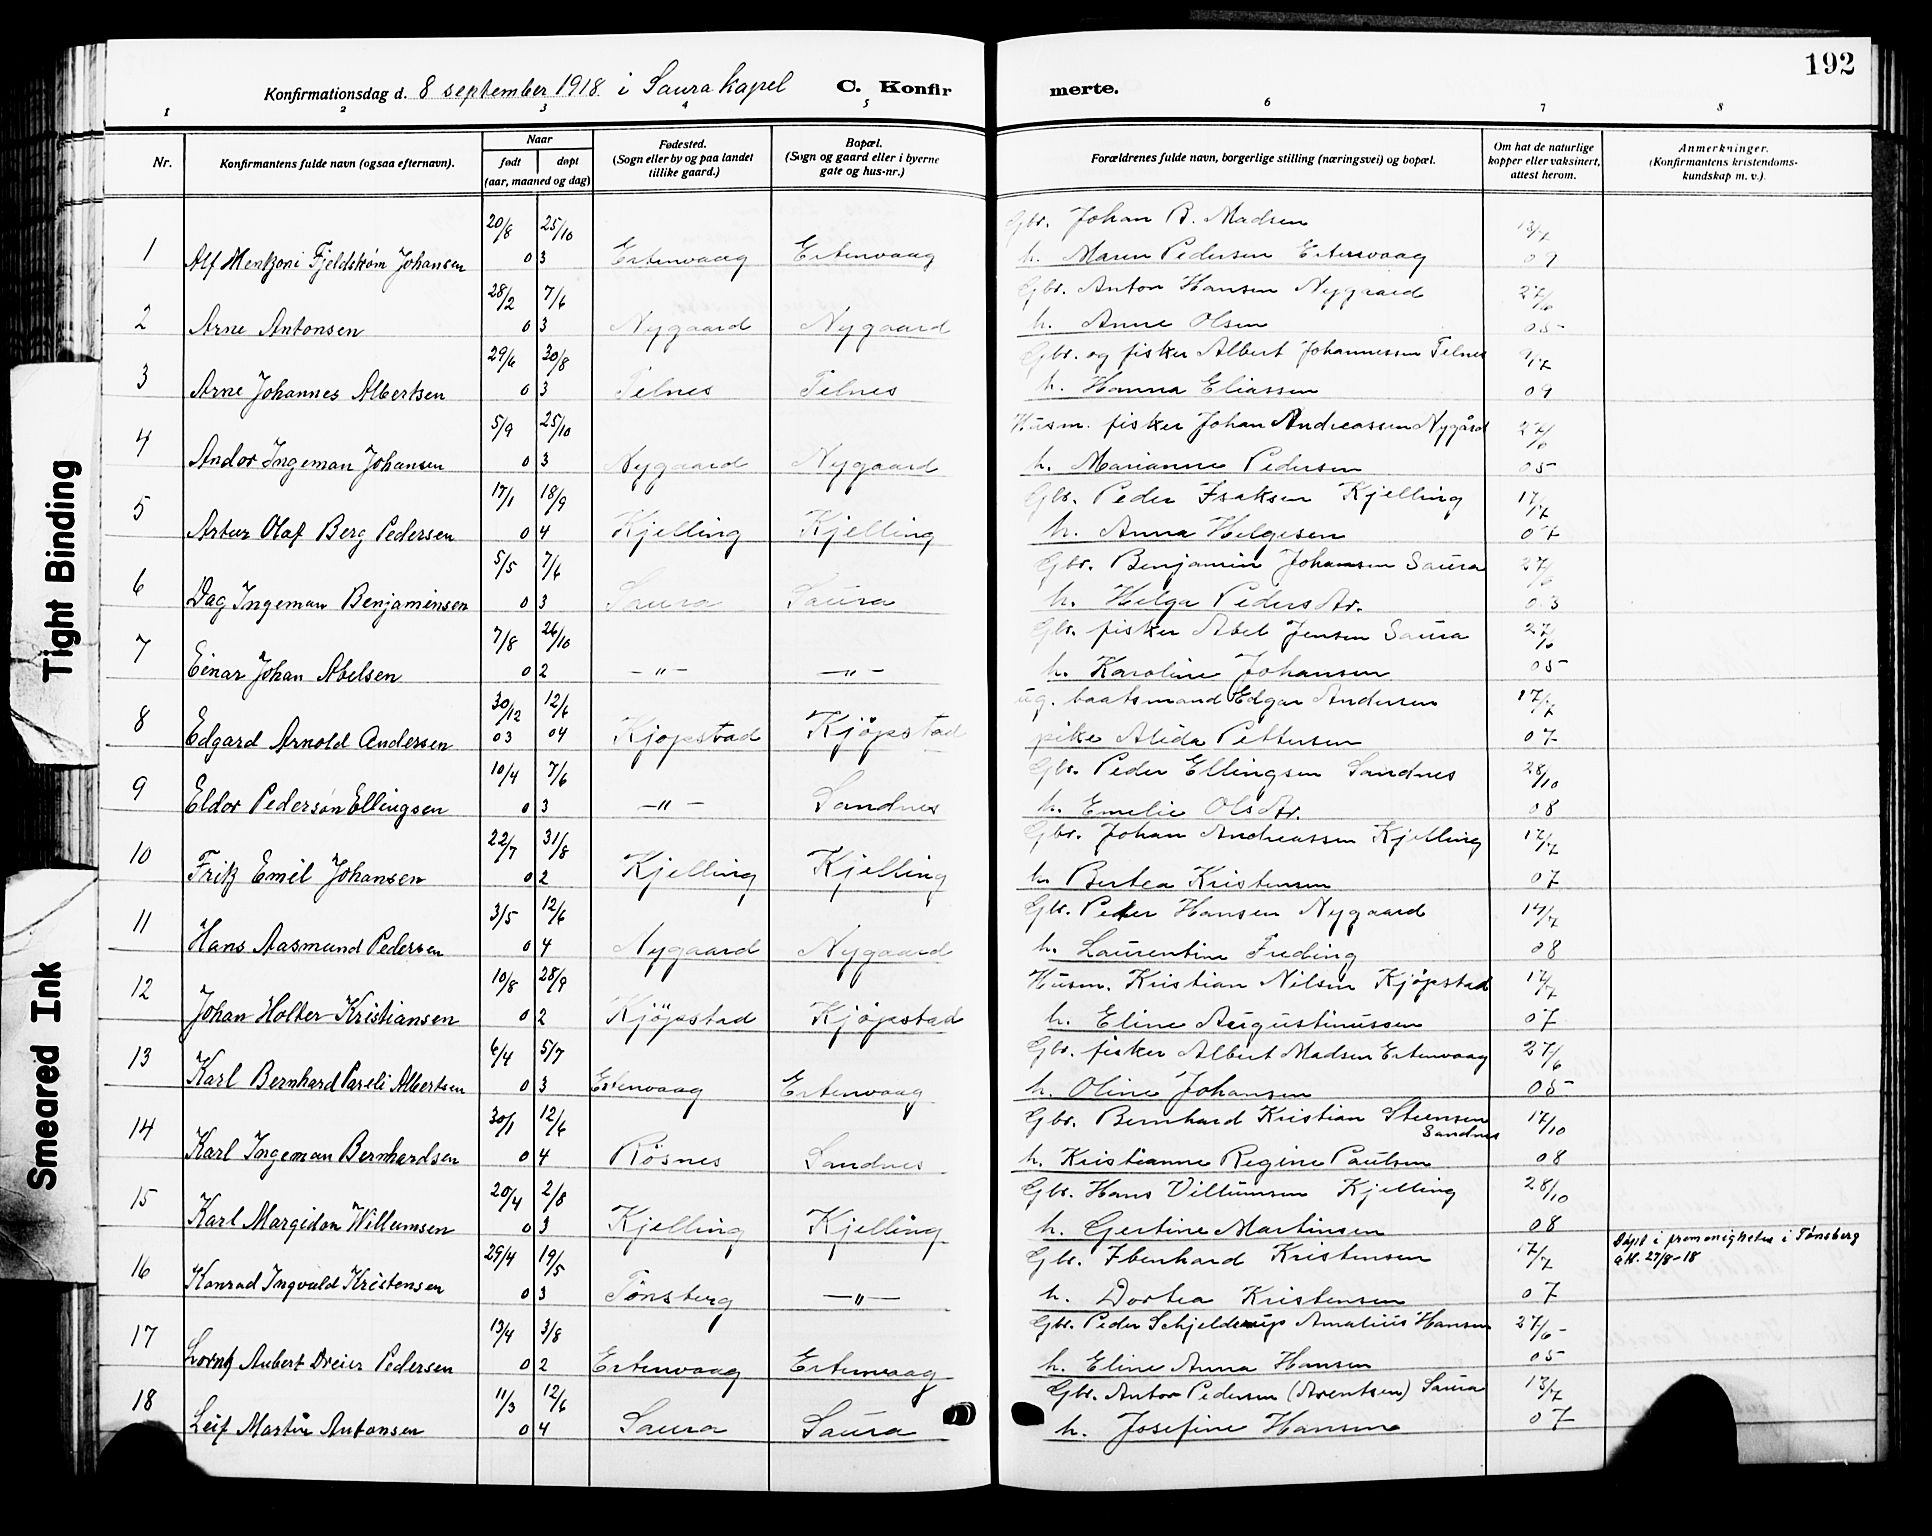 192
Konfirmationsdag d. 8 september 1918 i Saura kapel C. Konfir merte.
1 2 3 4 5 6 7 8
Nr. Konfirmantens fulde navn (ogsaa efternavn). Naar født døpt (aar, maaned og dag) Fødested. (Sogn eller by og paa landet tillike gaard.) Bopæl. (Sogn og gaard eller i byerne gate og hus-nr.) Forældrenes fulde navn, borgerlige stilling (næringsvei) og bopæl. Om hat de naturlige kopper eller vaksinert, attest herom. Anmerkninger. (Konfirmantens kristendoms-kundskap m. v.).
20/8 25/10 Gbr. Johan B. Madsen
1 Alf Mentzoni Fjeldstrøm Johansen 0 3 Ertenvaag Ertenvaag h. Maren Pedersen Ertenvaag 09
28/2 7/6 Gbr. Anton Hansen Nygaard 27/6
2 Arne Antonsen 0 3 Nygaard Nygaard h. Anne Olsen 05
29/6 30/8 Gbr. og fisker Albert Johannessen Telnes 9/7
3 Arne Johannes Albertsen 0 3 Telnes Telnes h. Hanna Eliassen 09
5/9 25/10 Husm. fisker Johan Andreassen Nygård 27/6
4 Andor Ingeman Johansen 0 3 Nygaard Nygaard h. Marianne Pedersen 05
17/1 18/9 Gbr. Peder Isaksen Kjelling 17/7
5 Artur Olaf Berg Pedersen 0 4 Kjelling Kjelling h. Anna Helgesen 07
5/5 7/6 Gbr. Benjamin Johansen Saura 27/6
6 Dag Ingeman Benjaminsen 0 3 Saura Saura h. Helga Pedersdtr.
7/8 26/10 Gbr. fisker Abel Jensen Saura 27/6
7 Einar Johan Abelsen 0 2 —"— —"— h. Karoline Johansen 05
30/12 12/6 ug. baatsmand Edgar Andersen 17/7
8 Edgard Arnold Andersen 03 04 Kjøpstad Kjøpstad pike Alida Pettersen 07
10/4 7/6 Gbr. Peder Ellingsen Sandnes 28/10
9 Eldor Pedersøn Ellingsen 0 3 —"— Sandnes h. Emelie Olsdtr. 08
22/7 31/8 Gbr. Johan Andreassen Kjelling 17/7
10 Fritz Emil Johansen 0 2 Kjelling Kjelling h. Bertea Kristensen 07
3/5 12/6 Gbr. Peder Hansen Nygaard 14/7
11 Hans Aasmund Pedersen 0 4 Nygaard Nygaard h. Laurentine Freding 08
10/8 28/9 Husm. Kristian Nilsen Kjøpstad 17/7
12 Johan Holter Kristiansen 0 2 Kjöpstad Kjøpstad h. Eline Augustinussen 07
6/4 5/7 Gbr. fisker Albert Madsen Ertenvaag 27/6
13 Karl Bernhard Pareli Albertsen 0 3 Ertenvaag Ertenvaag h. Oline Johansen 05
30/1 12/6 Gbr. Bernhard Kristian Steensen Sandnes 17/10
14 Karl Ingeman Bernhardsen 0 4 Røsnes Sandnes h. Kristianne Regine Paulsen 08
20/4 2/8 Gbr. Hans Villumsen Kjelling 28/10
15 Karl Margidon Willumsen 0 3 Kjelling Kjelling h. Gertine Martinsen 08
29/4 19/5 Gbr. Ebenhard Kristensen 17/7 Døpt i frimenigheten i Tønsberg
att. 27/8-18
16 Konrad Ingvald Kristensen 0 3 Tønsberg —"— h. Dortea Kristensen 07
13/4 3/8 Gbr. Peder Schjelderup Amalius Hansen 27/6
17 Lorntz Aubert Dreier Pedersen 0 2 Ertenvaag Ertenvaag h. Eline Anna Hansen 05
11/3 12/6 Gbr. Anton Pedersen (Arentsen) Saura 13/7
18 Leif Martin Antonsen 0 4 Saura Saura h. Josefine Hansen 07
Tight Binding
Smeared Ink